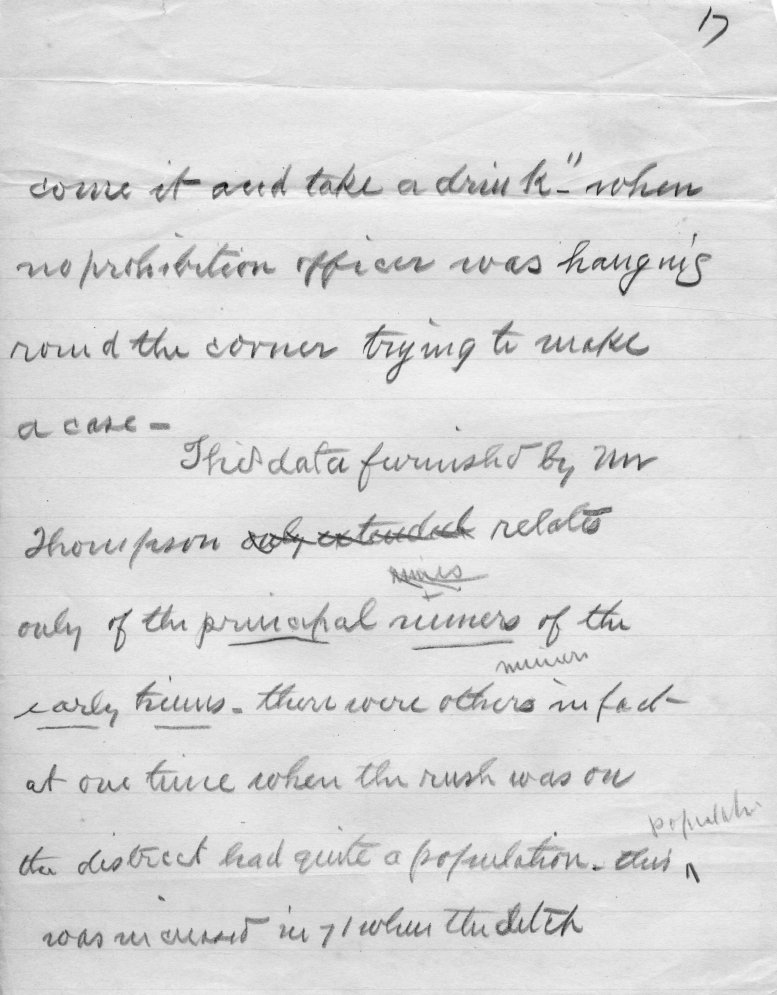 17
come it and take a drink-" when
no prohibition officer was hanging
round the corner trying to make
a case -
This data furnished by Mr
Thompson only extended relates
mines
only of the principal miners of the
miners
early times - there were others in fact
at one time when the rush was on
populatio
the district had quite a population - this ^
was increased in 71 when the ditch